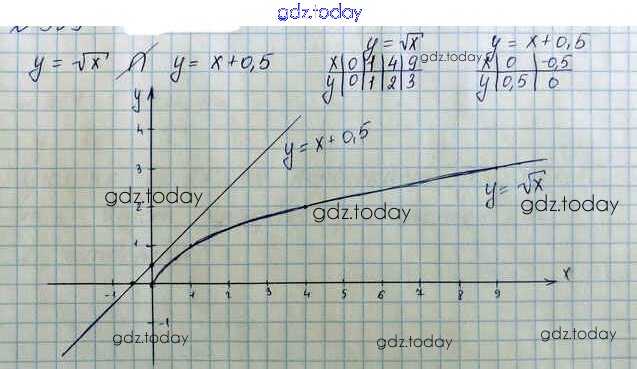 gdz.today
y = √x И y = x + 0,5
y = √x
x 0 1 4 9
y 0 1 2 3
gdz.today
y = x + 0,5
x 0 -0,5
y 0,5 0
y
4
3
2
1
y = x + 0,5
gdz.today
gdz.today
y = √x
gdz.today
-1 1 2 3 4 5 6 7 8 9 x
-1
gdz.today
gdz.today
gdz.today